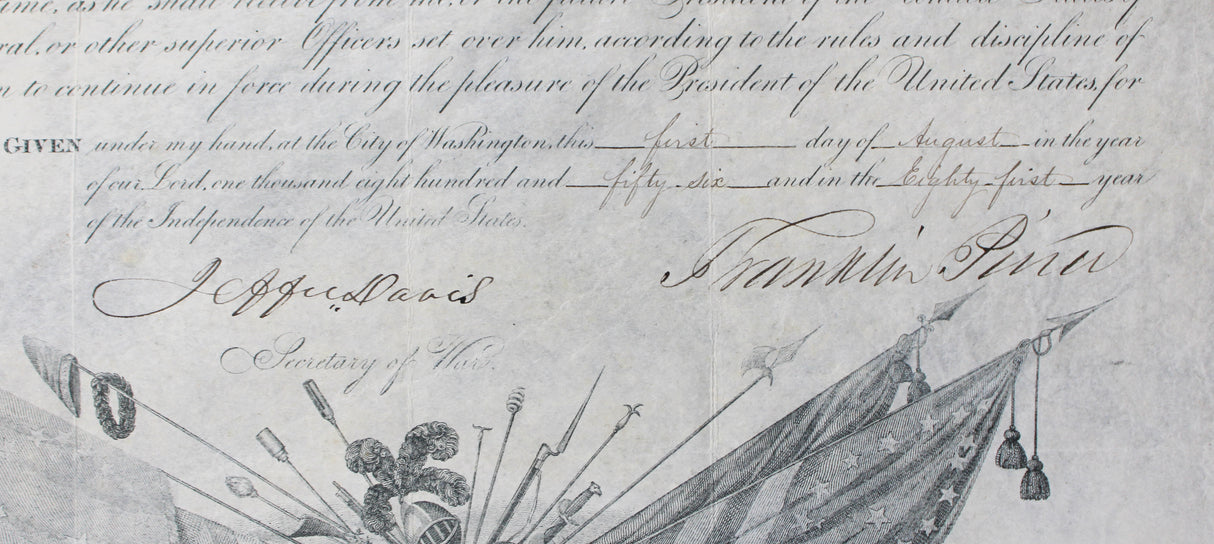 time, as he shall receive from me, or the future President of the United States of
ral, or other superior Officers set over him, according to the rules and discipline of
n to continue in force during the pleasure of the President of the United States, for
GIVEN under my hand, at the City of Washington, this first day of August in the year
of our Lord, one thousand eight hundred and fifty six and in the Eighty-first year
of the Independence of the United States.
Franklin Pierce
Jeffn Davis
Secretary of War.